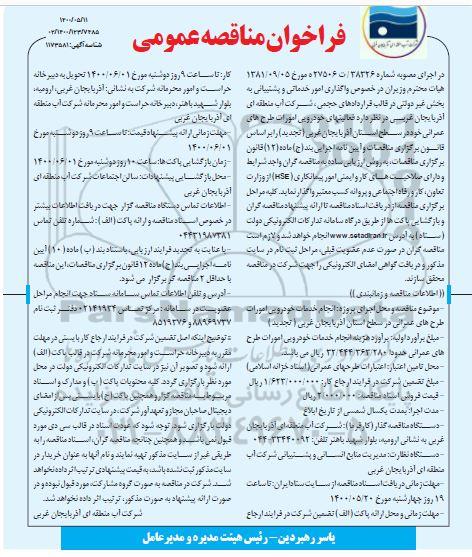 ۱۴۰۰/۰۵/۱۱
۰۲/۱۴۰۰/۱۲۳/۷۴۸۵
شناسه آگهی: ۱۱۷۳۵۸۱
فراخوان مناقصه عمومی
در اجرای مصوبه شماره ۳۸۳۲۶ / ت ۲۷۵۰۶ ه مورخ ۱۳۸۱/۰۹/۰۵
هیات محترم وزیران در خصوص واگذاری امور خدماتی و پشتیبانی به
بخش غیر دولتی در قالب قراردادهای حجمی ، شرکت آب منطقه ای
آذربایجان غربی در نظر دارد فعالیتهای خودرویی امورات طرح های
عمرانی خود در سطح استان آذربایجان غربی ( تجدید ) را بر اساس
قانون برگزاری مناقصات و آیین نامه اجرایی بند (ج) ماده (۱۲) قانون
برگزاری مناقصات، به روش ارزیابی ساده به مناقصه گران واجد شرایط
و دارای صلاحیت های کار و ایمنی امور پیمانکاری (HSE) از وزارت
تعاون، کار و رفاه اجتماعی و پروانه کسب معتبر واگذار نماید. کلیه مراحل
برگزاری مناقصه از دریافت اسناد مناقصه تا ارائه پیشنهاد مناقصه گران
و بازگشایی پاکت ها از طریق درگاه سامانه تدارکات الکترونیکی دولت
( ستاد ) به آدرس www.setadiran.ir انجام خواهد شد و لازم است
مناقصه گران در صورت عدم عضویت قبلی، مراحل ثبت نام در سایت
مذکور و دریافت گواهی امضای الکترونیکی را جهت شرکت در مناقصه
محقق سازند.
(( اطلاعات مناقصه و زمانبندی ))
- موضوع مناقصه و محل اجرای پروژه: انجام خدمات خودرویی امورات
طرح های عمرانی در سطح استان آذربایجان غربی ( تجدید )
- مبلغ برآورد اولیه: برآورد هزینه انجام خدمات خودرویی امورات طرح
های عمرانی حدودا ۳۲/۴۴۴/۳۶۲/۲۸۰ ریال می باشد.
- محل تامین اعتبار: اعتبارات طرحهای عمرانی ( اسناد خزانه اسلامی)
- مبلغ تضمین شرکت در فرایند ارجاع کار: ۱/۶۲۳/۰۰۰/۰۰۰ ریال
- قیمت فروش اسناد مناقصه: ۲/۰۰۰/۰۰۰ ریال
- مدت اجرا: بمدت یکسال شمسی از تاریخ ابلاغ
- دستگاه مناقصه گذار (کارفرما): شرکت آب منطقه ای آذربایجان
غربی به نشانی ارومیه، بلوار شهید باهنر تلفن: ۳۳۴۴۰۰۹۲-۰۴۴
- دستگاه نظارت: مدیریت منابع انسانی و پشتیبانی شرکت آب
منطقه ای آذربایجان غربی
- مهلت زمانی دریافت اسناد مناقصه از سایت ستاد ایران: تا ساعت
۱۹ روز چهارشنبه مورخ ۱۴۰۰/۰۵/۲۰
- مهلت زمانی و محل ارائه پاکت (الف) تضمین شرکت در فرایند ارجاع
کار: تا ساعت ۹ روز دوشنبه مورخ ۱۴۰۰/۰۶/۰۱ تحویل به دبیرخانه
حراست و امور محرمانه شرکت به نشانی: آذربایجان غربی، ارومیه،
بلوار شهید باهنر، دبیرخانه حراست و امور محرمانه شرکت آب منطقه
ای آذربایجان غربی
- مهلت زمانی ارائه پیشنهاد قیمت: تا ساعت ۹ روز دوشنبه مورخ
۱۴۰۰/۰۶/۰۱
- زمان بازگشایی پاکت ها: ساعت ۱۰ روز دوشنبه مورخ ۱۴۰۰/۰۶/۰۱
- محل بازگشایی پیشنهادات: سالن اجتماعات شرکت آب منطقه ای
آذربایجان غربی
- اطلاعات تماس دستگاه مناقصه گزار جهت دریافت اطلاعات بیشتر
در خصوص اسناد مناقصه و ارائه پاکت (الف) : شماره تلفن تماس
۰۴۴۳۱۹۸۷۳۸۱
- با عنایت به تجدید فرایند ارزیابی، باستناد بند (ب) ماده (۱۰) آیین
نامه اجرایی بند (ج) ماده ۱۲ قانون برگزاری مناقصات، این مناقصه
با حداقل ۲ مناقصه گر برگزار می شود.
- آدرس و تلفن اطلاعات تماس سامانه ستاد جهت انجام مراحل
عضویت در سامانه: مرکز تماس ۰۲۱۴۱۹۳۴ دفتر ثبت نام
۸۸۹۶۹۷۳۷ و ۸۵۱۹۳۷۶۸
* توضیح اینکه اصل تضمین شرکت در فرایند ارجاع کار بایستی در مهلت
مقرر به دبیرخانه حراست و امور محرمانه شرکت در قالب پاکت (الف)
ارائه شود و تصویر آن نیز در سایت تدارکات الکترونیکی دولت در محل
مورد نظر بارگزاری گردد. کلیه محتویات پاکت (ب) و مدارک و اسناد
مربوطه مناقصه گزار و همچنین پاکت (ج) بایستی پس از امضای
دیجیتال صاحبان مجاز و تعهدآور شرکت، در سایت تدارکات الکترونیکی
دولت بارگزاری شود. توجه شود که عودت اسناد در قالب سی دی مورد
قبول نمی باشد و همچنین چنانچه مناقصه گران، اسناد مناقصه را به
طریقی غیر از سایت مذکور تهیه نمایند و نام آنها به عنوان خریدار در
سایت مذکور ثبت نشده باشد، به قیمت پیشنهادی ترتیب اثر داده نخواهد
شد. شرکت در مناقصه به صورت گروه مشارکت، مورد قبول نبوده و در
صورت ارائه پیشنهاد به صورت مذکور، ترتیب اثر داده نخواهد شد.
شرکت آب منطقه ای آذربایجان غربی
یاسر رهبردین - رئیس هیئت مدیره و مدیرعامل